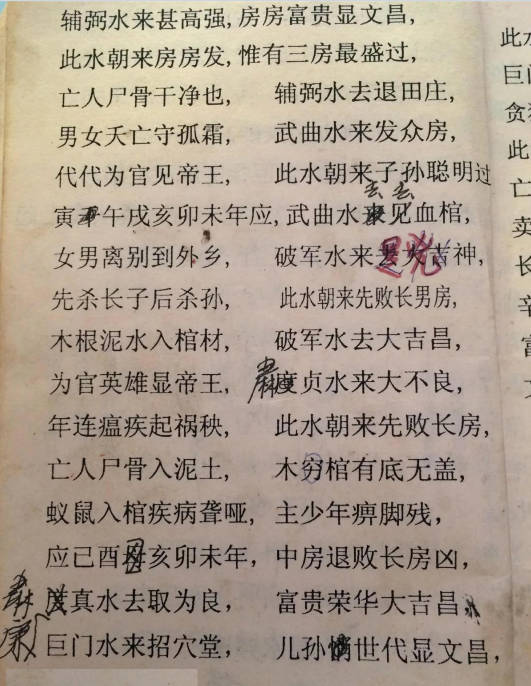 辅弼水来甚高强,房房富贵显文昌,
此水朝来房房发,惟有三房最盛过,
亡人尸骨干净也,　辅弼水去退田庄,
男女夭亡守孤霜,　武曲水来发众房,
代代为官见帝王,　此水朝来子孙聪明过
去 去
寅午戌亥卯未年应,武曲水来见血棺,
女男离别到外乡,　破军水来是凶神,
先杀长子后杀孙,　此水朝来先败长男房,
木根泥水入棺材,　破军水去大吉昌,
为官英雄显帝王,　廉贞水来大不良,
年连瘟疾起祸秧,　此水朝来先败长房,
亡人尸骨入泥土,　木穷棺有底无盖,
蚁鼠入棺疾病聋哑,主少年痹脚残,
应己酉丑亥卯未年,中房退败长房凶,
廉真水去取为良,　富贵荣华大吉昌,
巨门水来招穴堂,　儿孙世代显文昌,
此水
巨门
贪
此
亡
卖
长
辛
富